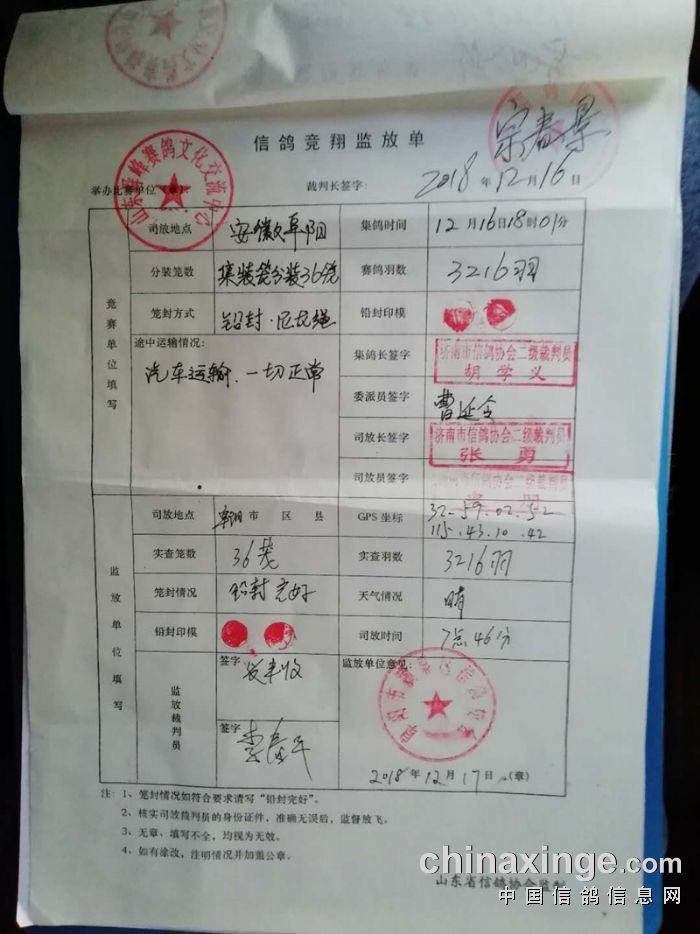 信鸽竞翔监放单
宗春景
举办比赛单位（章）： 裁判长签字： 2018年12月16日
竞赛单位填写
司放地点 安徽阜阳 集鸽时间 12月16日18时01分
分装笼数 集装笼分装36笼 赛鸽羽数 3216羽
笼封方式 铅封·尼龙绳 铅封印模
途中运输情况： 集鸽长签字 济南市信鸽协会二级裁判员
胡学义
汽车运输.一切正常
委派员签字 曹延令
司放长签字 济南市信鸽协会二级裁判员
张勇
司放员签字
监放单位填写
司放地点 阜阳市 区 县 GPS坐标 32.59.02.52
115.43.10.42
实查笼数 36笼 实查羽数 3216羽
笼封情况 铅封完好 天气情况 晴
铅封印模 司放时间 7点46分
监放裁判员 签字 监放单位意见：
签字
2018年12月17日（章）
注：1、笼封情况如符合要求请写“铅封完好”。
2、核实司放裁判员的身份证件，准确无误后，监督放飞。
3、无章、填写不全，均视为无效。
4、如有涂改，注明情况并加盖公章。
山东省信鸽协会监制
chinaxinge.com
中国信鸽信息网